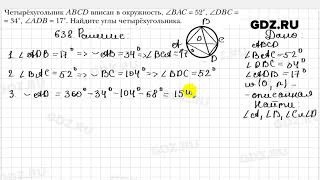 Четырёхугольник ABCD вписан в окружность, ∠BAC = 52°, ∠DBC =
= 34°, ∠ADB = 17°. Найдите углы четырёхугольника.
GDZ.RU
638 Решение
1. ∠ADB = 17° => ◡AB = 34° => ∠BCA = 17°
2. ∠BAC = 52° => ◡BC = 104° => ∠BDC = 52°
3. ◡AD = 360° - 34° - 104° - 68° = 154
B
A
O
C
D
Дано
ABCD
∠BAC = 52°
∠DBC = 34°
∠ADB = 17°
w(O, r) -
описанная
Найти:
∠A, ∠B, ∠C и ∠D